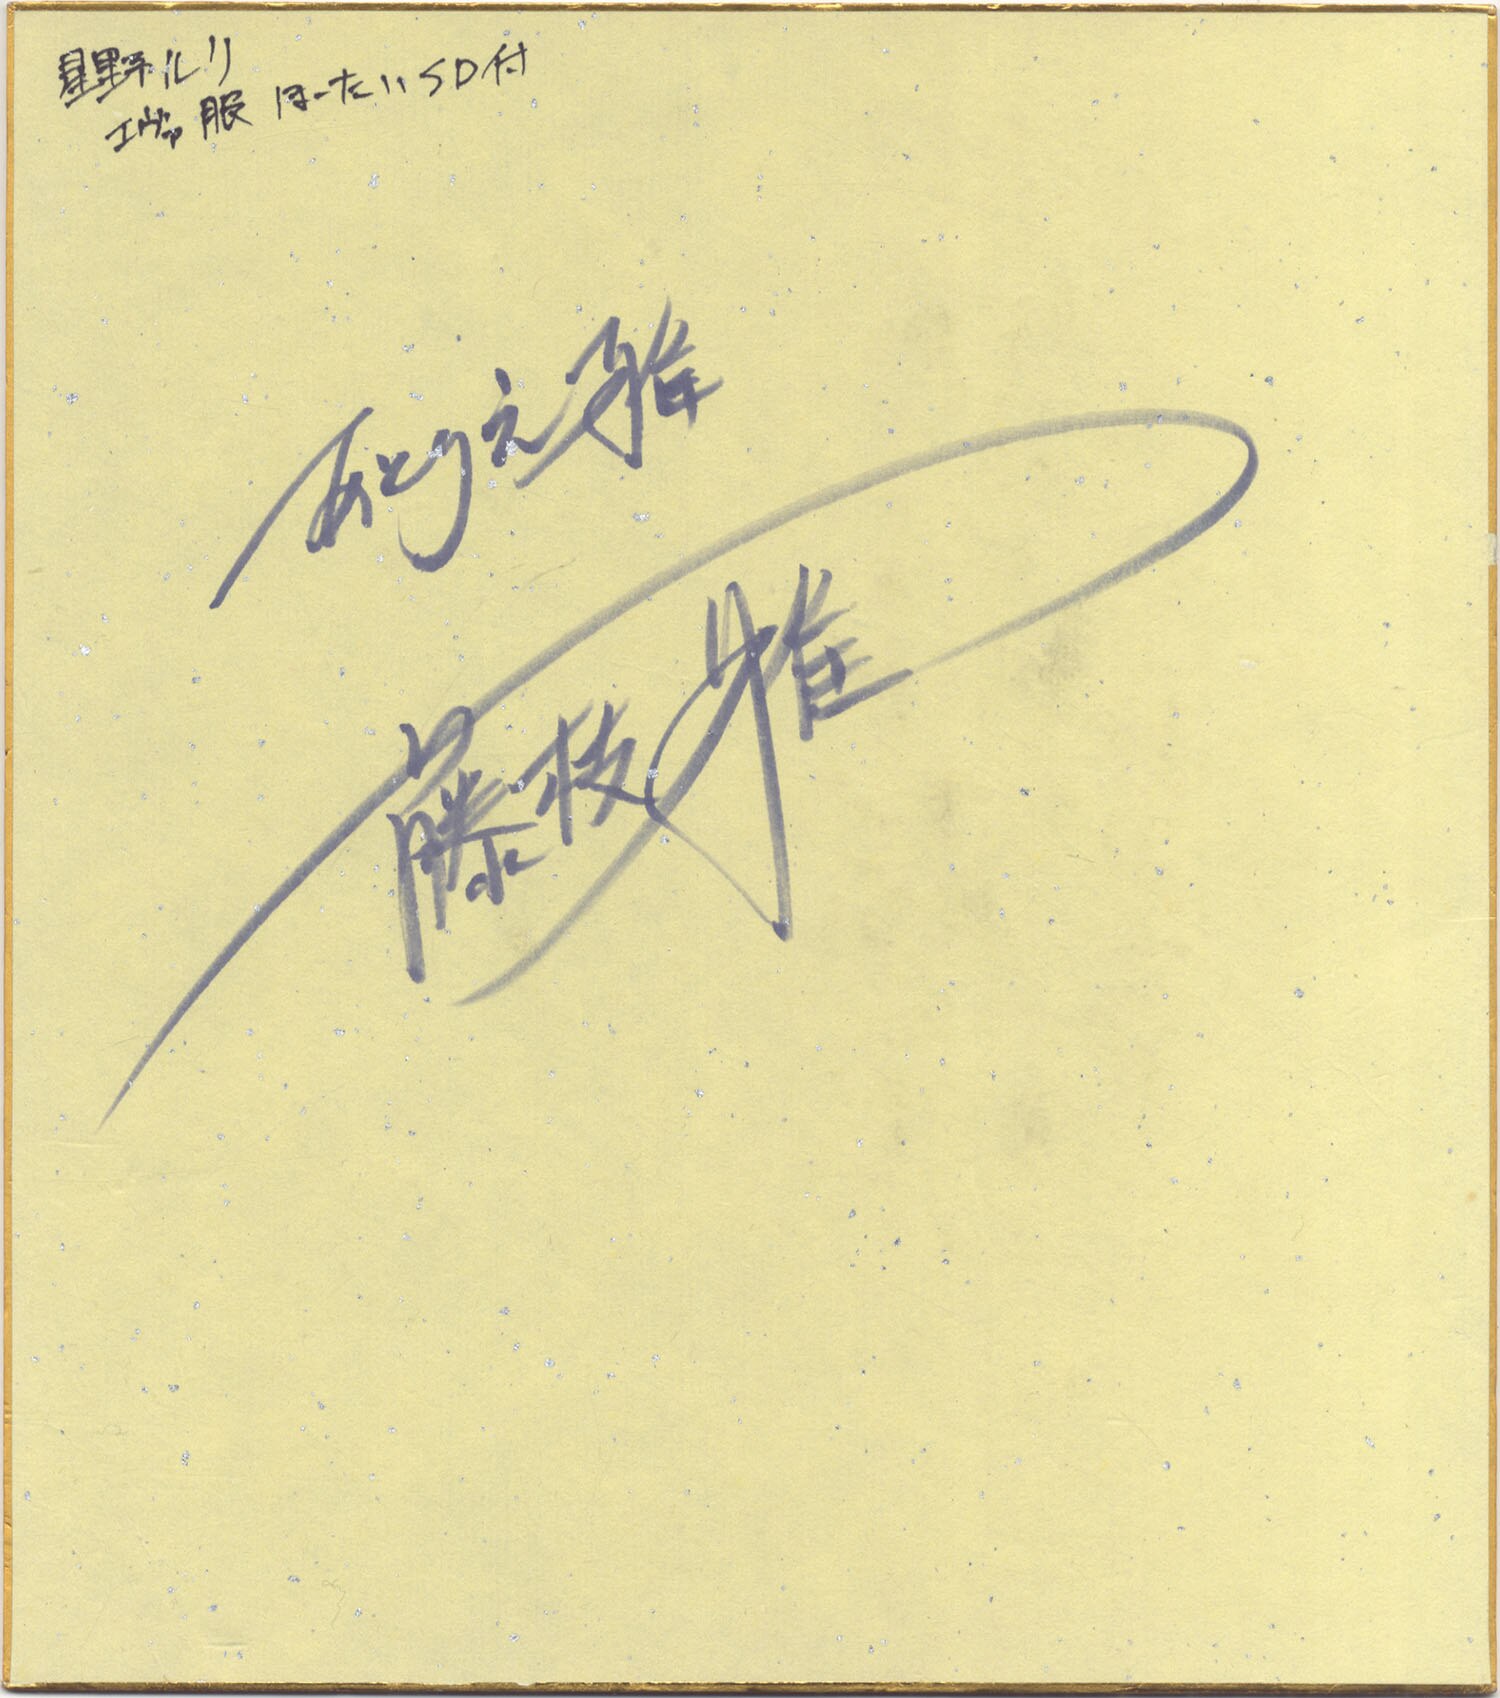 星野ルリ
エヴァ服 ほーたいSD付
あとりえ雅
藤枝雅